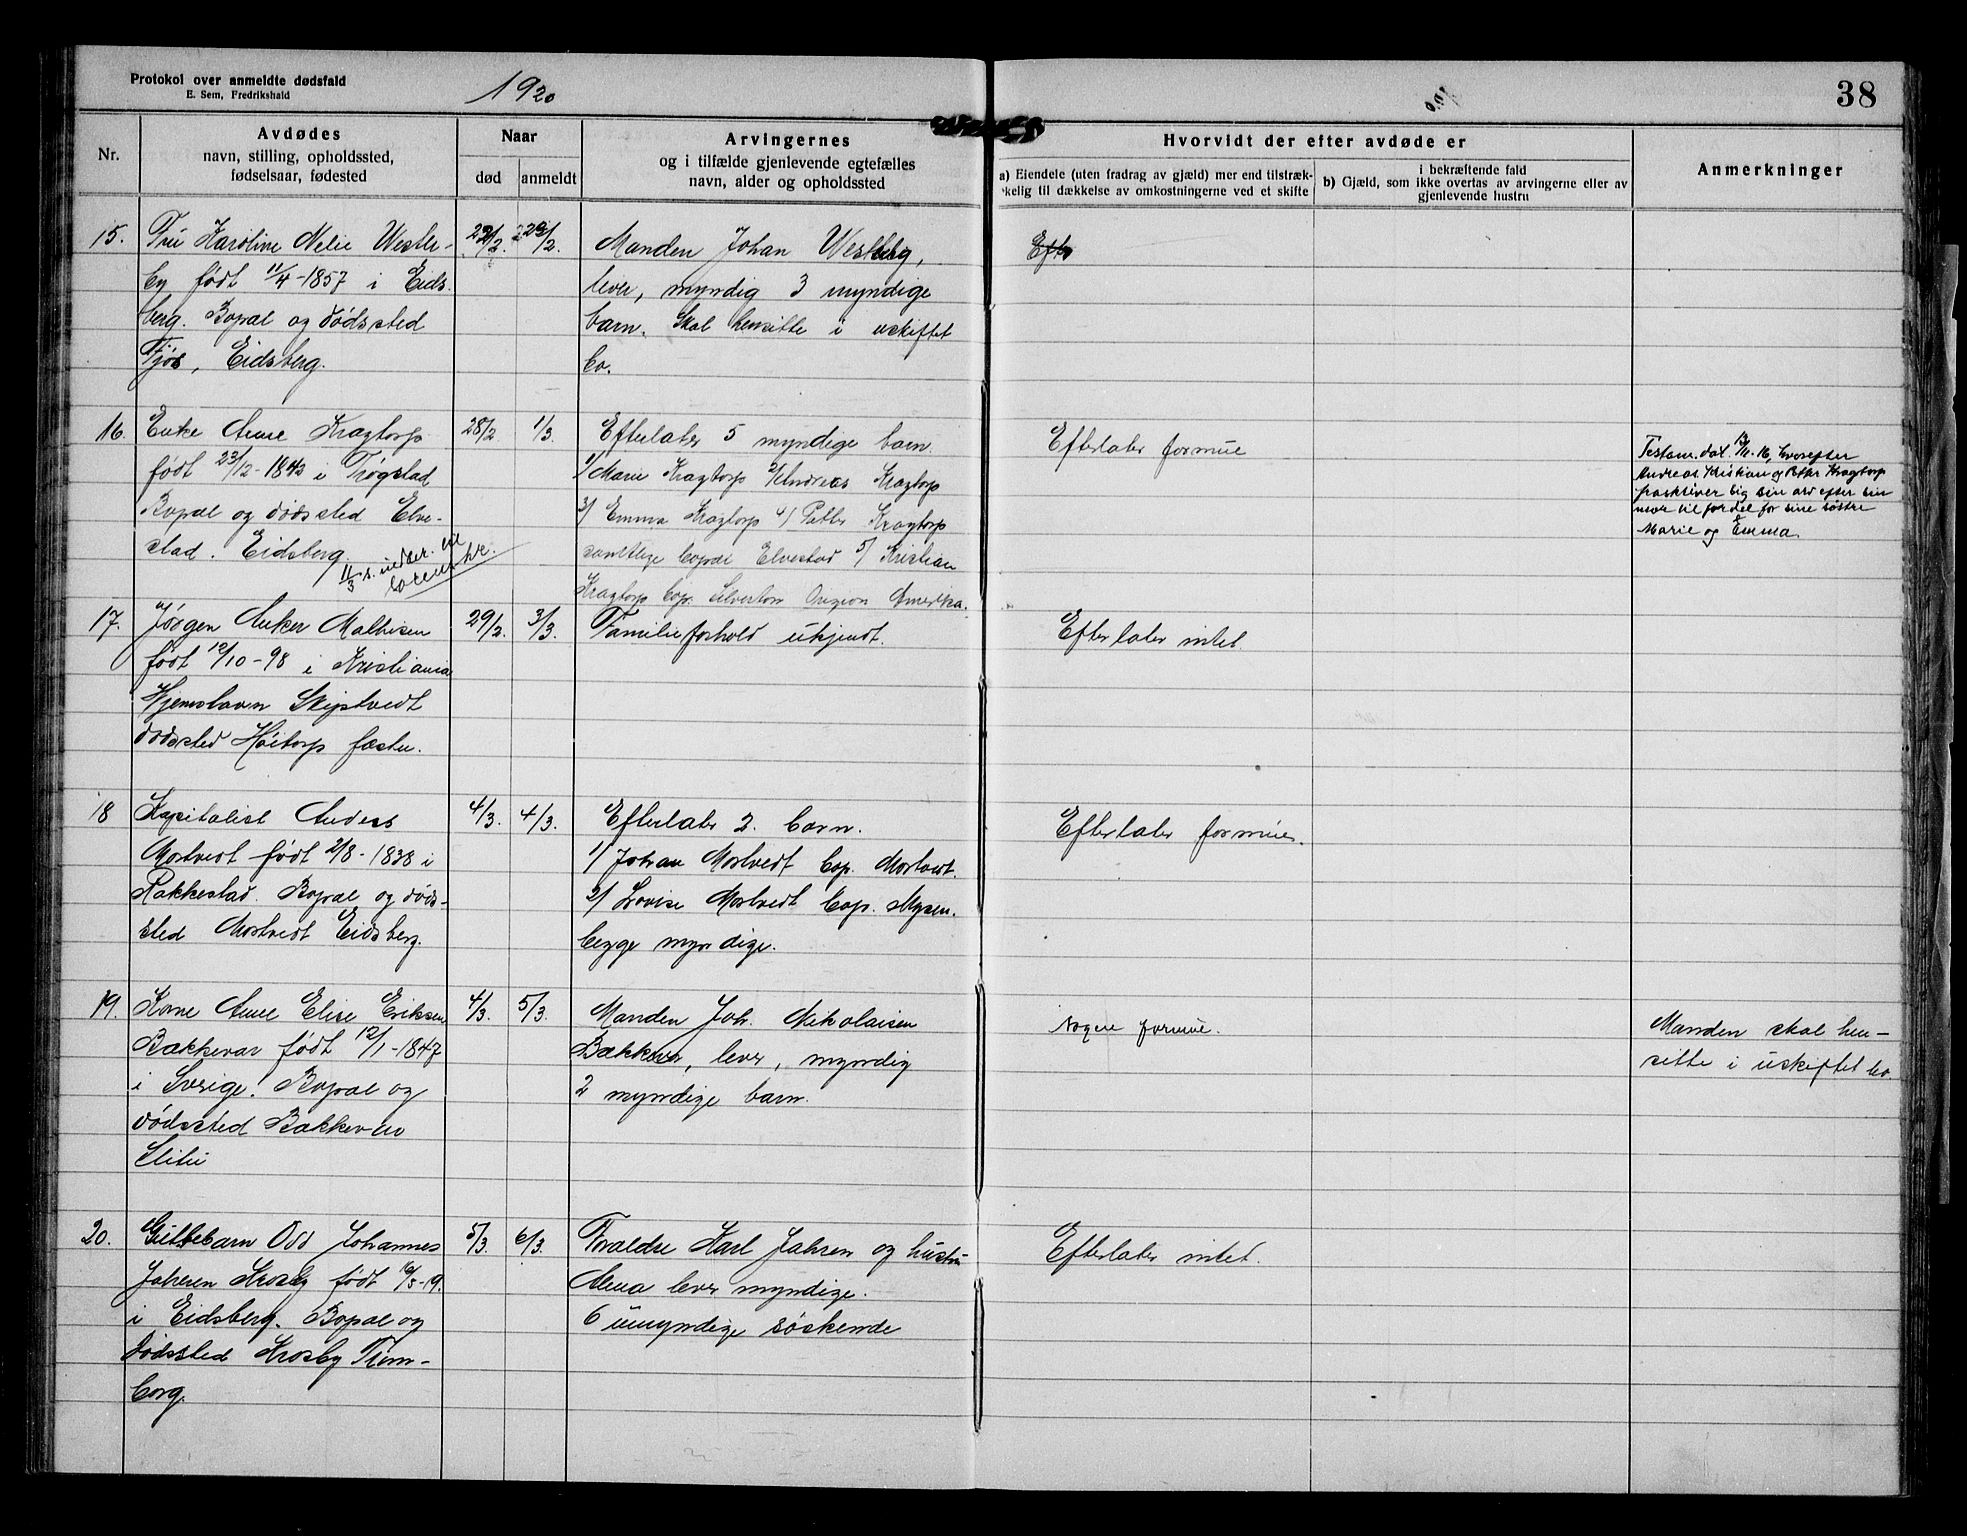 Protokol over anmeldte dødsfald
E. Sem, Fredrikshald
1920
38
Nr.
Avdødes
navn, stilling, opholdssted,
fødselsaar, fødested
Naar
død
anmeldt
Arvingernes
og i tilfælde gjenlevende egtefælles
navn, alder og opholdssted
Hvorvidt der efter avdøde er
a) Eiendele (uten fradrag av gjæld) mer end tilstræk-
kelig til dækkelse av omkostningerne ved et skifte
i bekræftende fald
b) Gjæld, som ikke overtas av arvingerne eller av
gjenlevende hustru
Anmerkninger
15.
Fru Karoline Nelie Wester-
by født 11/4-1857 i Eids-
berg. Bopæl og dødssted
Tjøs, Eidsberg.
Manden Johan Westerby,
lever, myndig 3 myndige
barn. Skal hensitte i uskiftet
bo.
Efter
16.
Enke Anne Kragtorp
født 23/12-1843 i Trøgstad
Bopæl og dødssted Elve-
stad. Eidsberg.
28/2
1/3.
Efterlater 5 myndige barn.
1/ Marie Kragtorp 2/ Andreas Kragtorp
3/ Emma Kragtorp 4/ Petter Kragtorp
samtlige bopæl Elvestad 5/ Kristian
Kragtorp bop. Silverton Oregion Amerika.
Efterlater formue
Testam. dat. 16, hvorefter
Andreas Kristian og Petter Kragtorp
fraskriver sig sin arv efter sin
mor til fordel for sine søstre
Marie og Emma.
17.
Jørgen Anker Mathisen
født 12/10-98 i Kristiania
Hjemstavn Skiptvedt
dødssted Høitorp fæstn.
29/2.
3/3.
Familieforhold ukjendt.
Efterlater intet.
18
Kapitalist Anders
Mostvedt født 2/8-1838 i
Rakkestad. Bopæl og døds-
sted Mostvedt Eidsberg.
4/3.
4/3.
Efterlater 2. barn.
1/ Johan Mostvedt bop. Mostvedt.
2/ Lovise Mostvedt bop. Mysen.
begge myndige.
Efterlater formue.
19.
Kone Anne Elise Eriksen
Bakkevar født 12/1-1847
i Sverige. Bopæl og
dødssted Bakkevar
Slitu
4/3.
5/3.
Manden Joh. Nikolaisen
Bækkevar, lever, myndig
2 myndige barn.
Nogen formue.
Manden skal hen-
sitte i uskiftet bo.
20.
Guttebarn Odd Johannes
Jahren Krosby født 10/5-19.
i Eidsberg. Bopæl og
dødssted Krosby Tróm-
borg.
5/3.
6/3.
Foræeldre Karl Jahren og hustru
Alma lever myndige.
6 umyndige søskende
Efterlater intet.